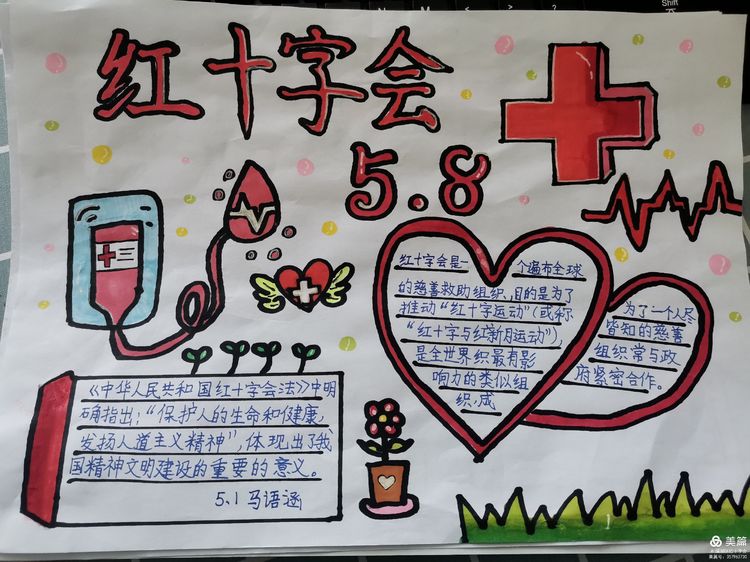 红十字会
5.8
红十字会是一个遍布全球
的慈善救助组织,目的是为了
推动“红十字运动”(或称
“红十字与红新月运动”)
是全世界织最有影
响力的类似组
织,成
为了一个人尽
皆知的慈善
组织常与政
府紧密合作。
《中华人民共和国红十字会法》中明
确指出:“保护人的生命和健康,
发扬人道主义精神”,体现出了我
国精神文明建设的重要的意义。
5.1马语涵
Shift
美篇